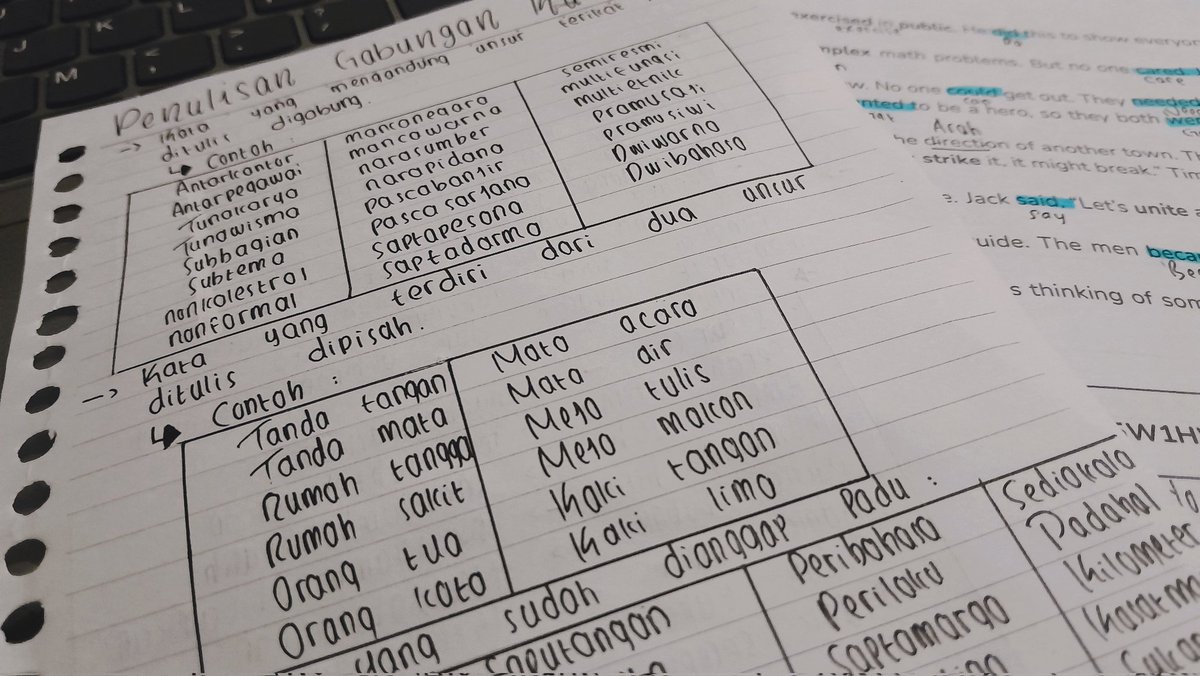 Penulisan Gabungan
→ Kata yang mengandung unsur terikat
ditulis digabung.
↳ Contoh :
Antarkantor
Antarpegawai
Tunakarya
Tunawisma
Subbagian
Subtema
nonkolestrol
nonformal
mancanegara
mancawarna
narasumber
narapidana
pascabanjir
pascasarjana
saptapesona
saptadarma
semiresmi
multifungsi
multietnik
pramusaji
pramusiwi
Dwiwarna
Dwibahasa
→ Kata yang terdiri dari dua unsur
ditulis dipisah.
↳ Contoh :
Tanda tangan
Tanda mata
Rumah tangga
Rumah sakit
Orang tua
Orang kota
Mata acara
Mata air
Meja tulis
Meja makan
Kaki tangan
Kaki lima
yang sudah dianggap Padu :
Peribahasa
Perilaku
Saptamarga
Sediakala
Padahal
Kilometer
exercised in public. He did this to show everyone
exercise do
math problems. But no one cared
care
No one could get out. They needed
to be a hero, so they both
Arah
he direction of another town.
strike it, it might break." Tim
Jack said. "Let's unite
say
The men
s thinking of
W1H
J
K
L
M